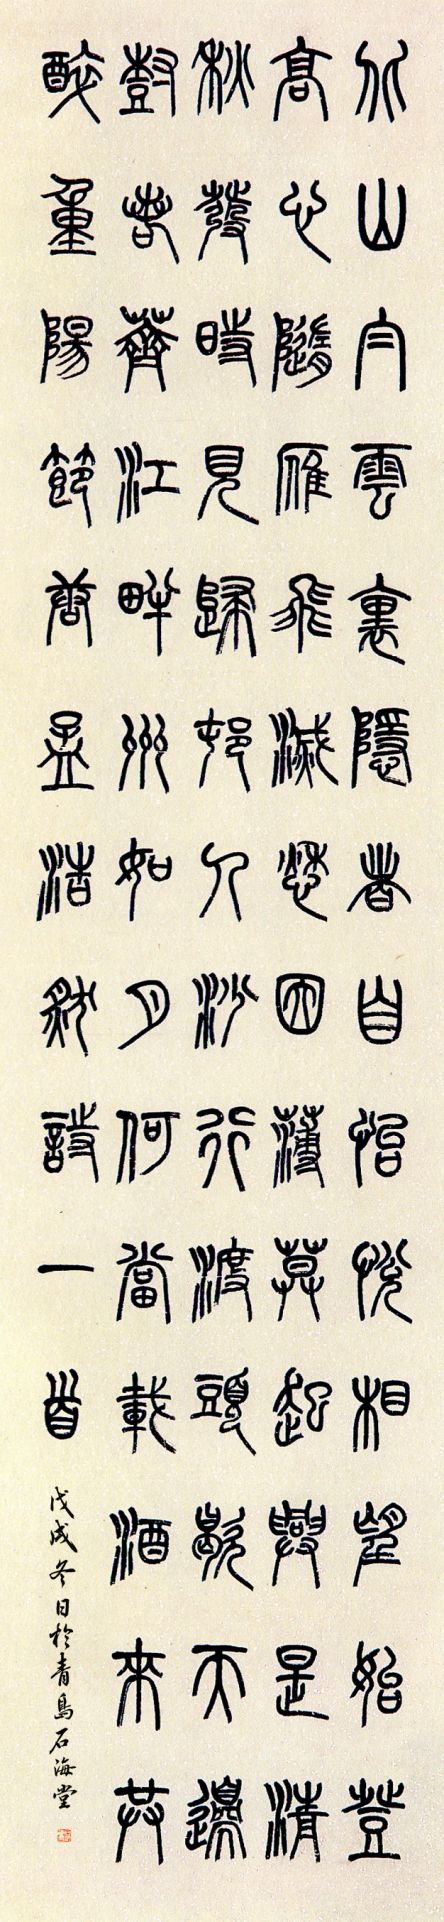 北山白雲裏隱者自怡悅相望始登
高心隨雁飛滅愁因薄莫起興是清
秋發時見歸邨人沙行渡頭歇天邊
尌若薺江畔州如月何當載酒來共
醉重陽節唐孟浩然詩一首
戊戌冬日於青島石海堂